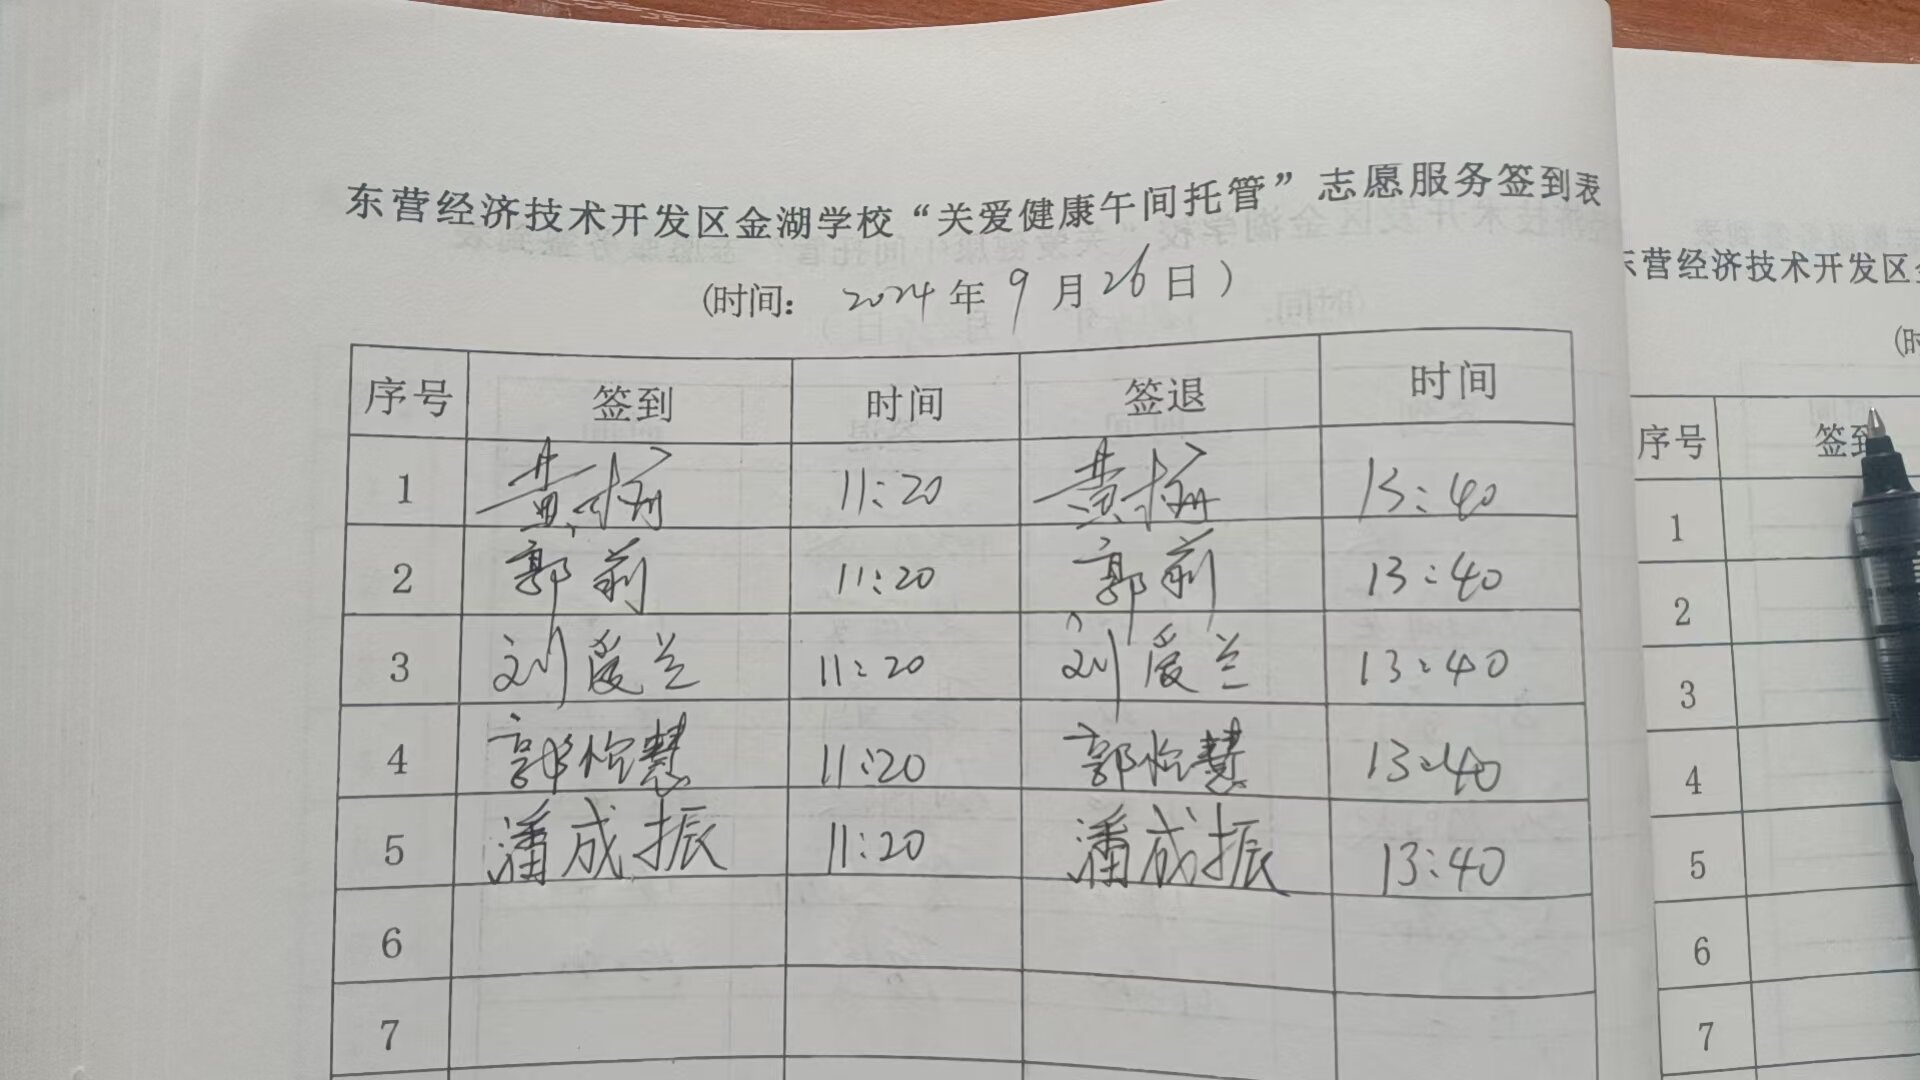 东营经济技术开发区金湖学校“关爱健康午间托管”志愿服务签到表
(时间： 2024年9月26日)
序号 签到 时间 签退 时间
1 黄梅 11:20 黄梅 13:40
2 郭莉 11:20 郭莉 13:40
3 刘爱兰 11:20 刘爱兰 13:40
4 郭怡慧 11:20 郭怡慧 13:40
5 潘成振 11:20 潘成振 13:40
6
7
营经济技术开发区
(时
序号 签到
1
2
3
4
5
6
7